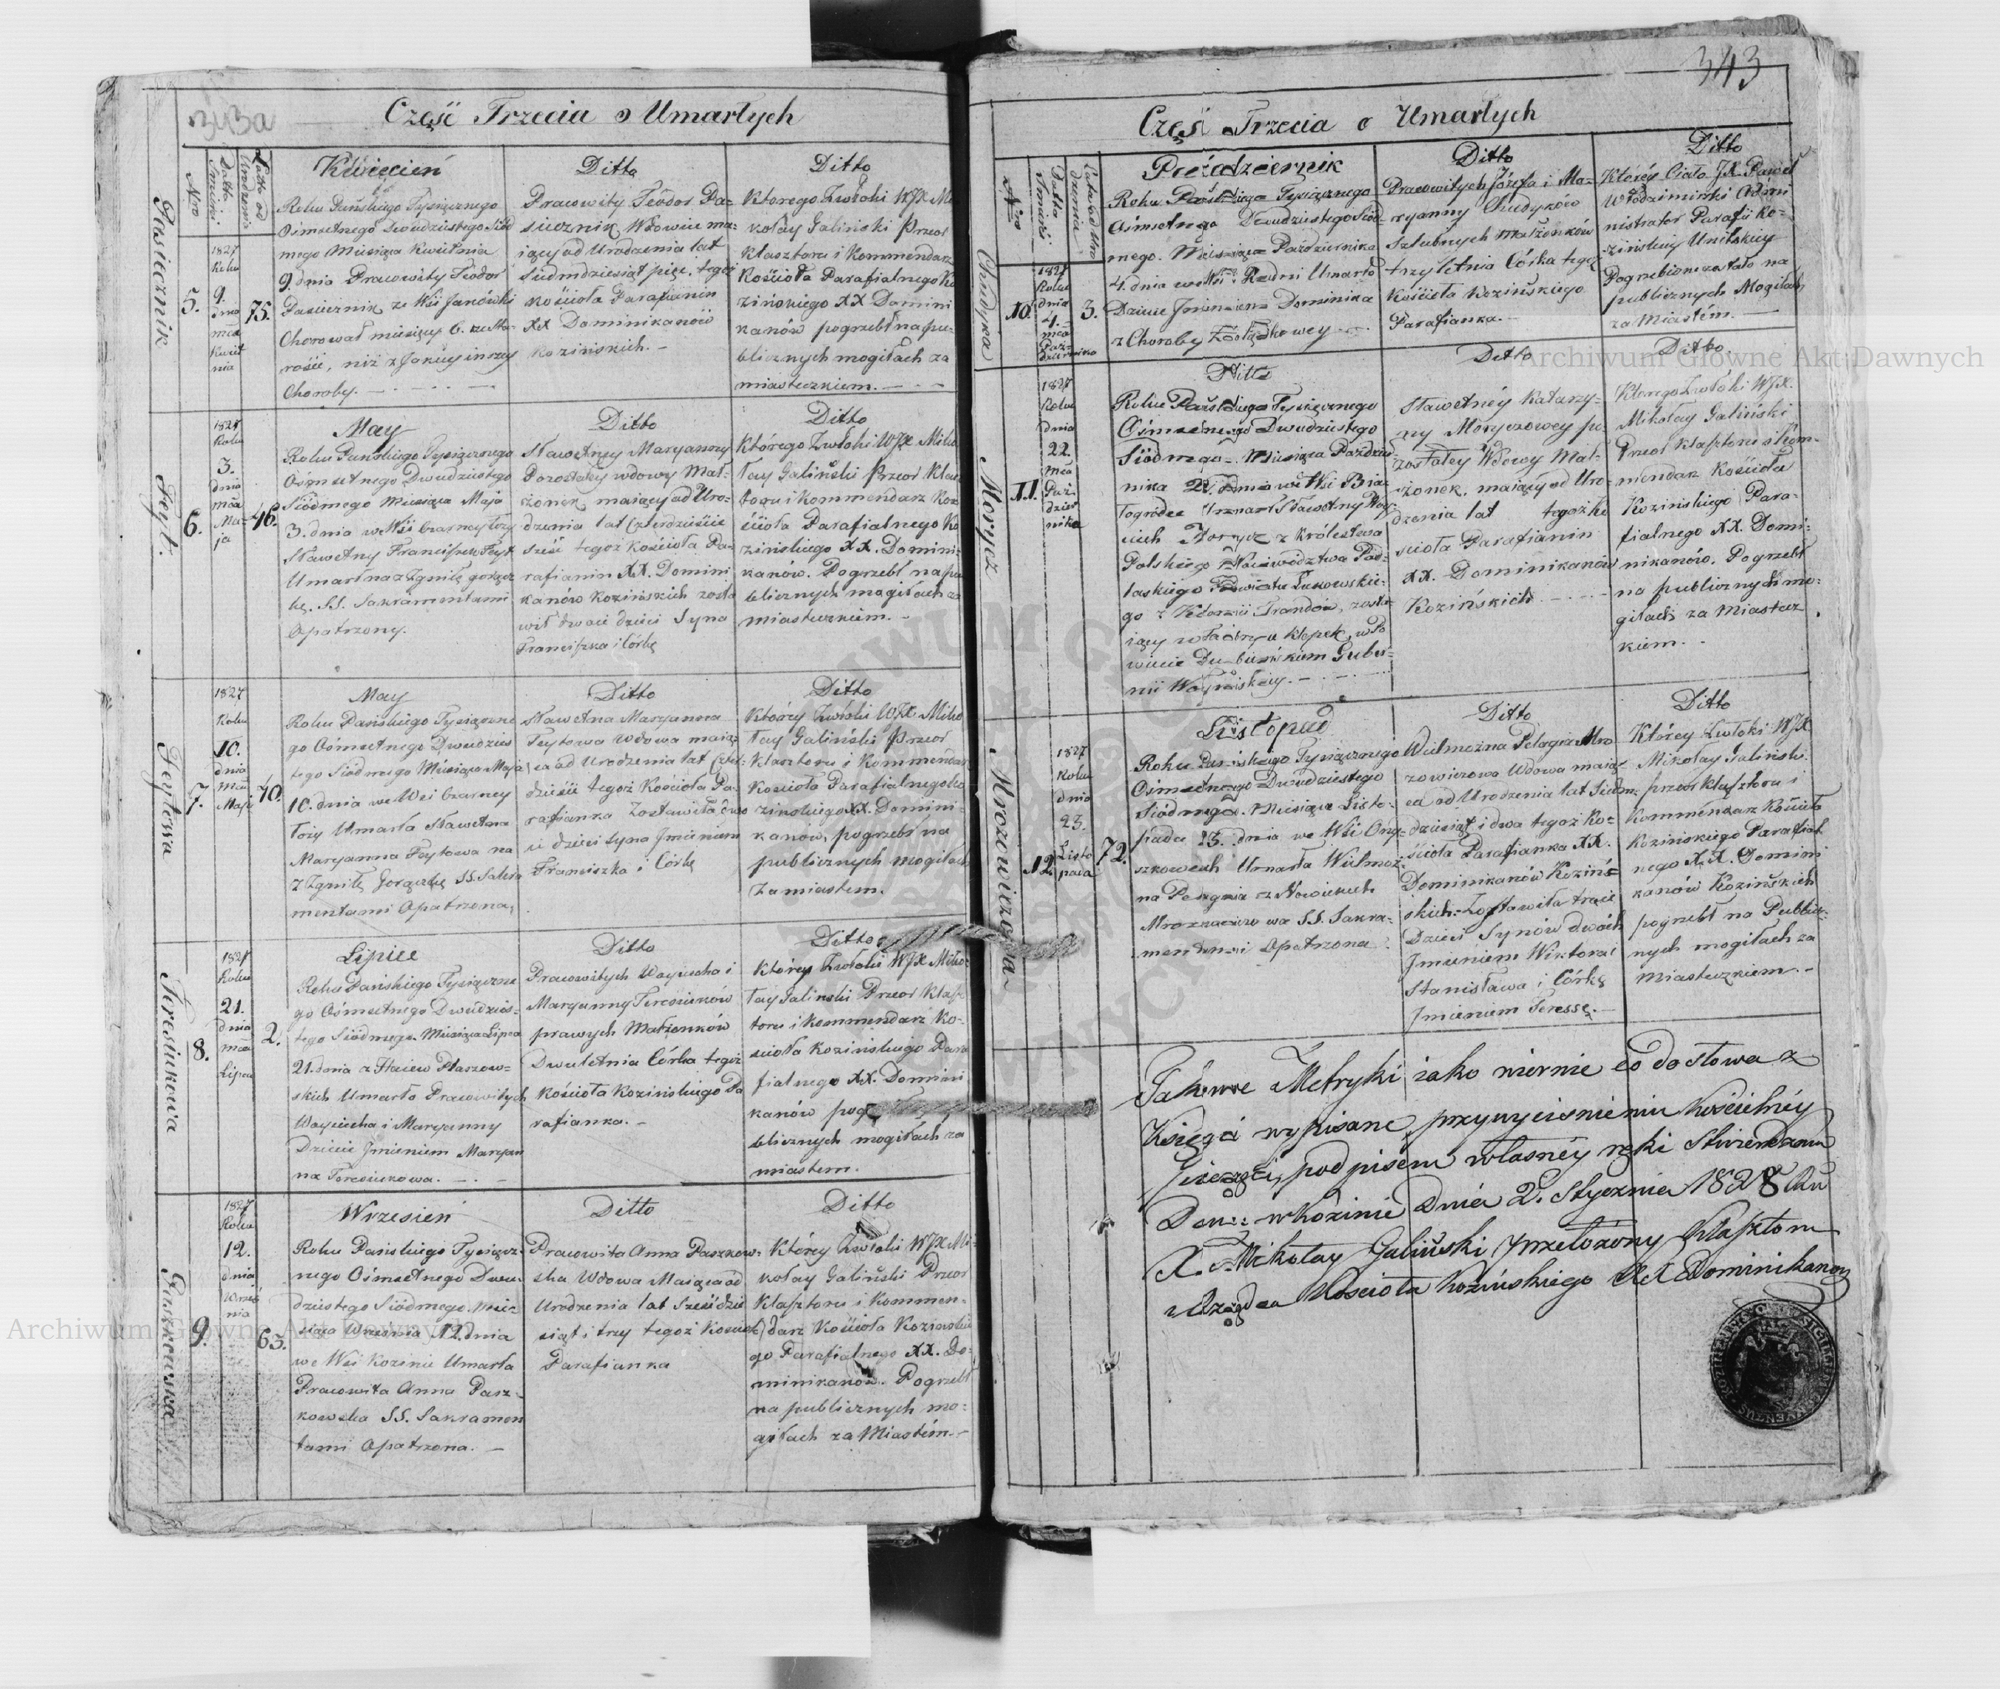 343a
Część Trzecia o Umarłych
Nro
Datta Smierci.
Latta od Urodzenia
Pasiecznik
5.
1827
Roku
9.
dnia
mca
Kwiet
nia
75.
Kwiecień
Roku Pańskiego Tysiącznego
Osmsetnego Dwudziestego Siód
mego Miesiąca Kwietnia
9. dnia Pracowity Teodor
Pasiecznik ze Wsi Janówki
Chorował miesięcy 6. zesta-
rości, niż z Jakiey inszey
Choroby.
Ditto
Pracowity Teodor Pa-
siecznik Wdowiec ma-
iący od Urodzenia lat
siedmdziesiąt pięć, tegoż
kościoła Parafianin
XX Dominikanów
Kozińskich.
Ditto
Ktorego Zwłoki WJX Mi
kołay Galiński Przeor
klasztoru i Kommendarz
Kościoła Parafialnego Ko
zińskiego XX Domini
kanów pogrzebł na pu-
blicznych mogiłach za
miasteczkiem.
Feyt.
6.
1827
Roku
3.
dnia
mca
Ma-
ja
46.
May
Roku Pańskiego Tysiącznego
Osmsetnego Dwudziestego
Siódmego Miesiąca Maja
3. dnia we Wsi Czarney Łozy
Sławetny Franciszek Feyt
Umarł na zgniłę gorącz
kę. SS. Sakramentami
Opatrzony.
Ditto
Sławetney Maryanny
Pozostałey wdowy Mał-
żonek, maiący od Uro-
dzenia lat Czterdzieście
sześć tegoż Kościoła Pa-
rafianin XX. Domini
kanów Kozińskich zosta
wił dwoie dzieci Syna
Franciszka i Córkę
Ditto
Którego Zwłoki WJX Miko
łay Galiński Przeor Klasz
toru i Kommendarz Koś
ścioła Parafialnego Ko
zińskiego XX. Domini-
kanów. Pogrzebł na pu
blicznych mogiłach za
miasteczkiem.
Feytowa
7.
1827
Roku
10.
dnia
mca
Maja
40.
May
Roku Pańskiego Tysiączne
go Ośmsetnego Dwudzies
tego Siódmego Miesiąca Maja
10. dnia we Wsi Czarney
łozy Umarła Sławetna
Maryanna Feytowa na
z Zgniłę Gorączkę SS. Sakra
mentami Opatrzona,
Ditto
Sławetna Maryanna
Feytowa Wdowa maią
ca od Urodzenia lat Czter-
dzieście tegoż Kościoła Pa-
rafianka Zostawiła dwo
ie dzieci Syna Jmieniem
Franciszka i Córkę
Ditto
Którey Zwłoki WJX. Miko
łay Galiński Przeor
Klasztoru i Kommendarz
Kościoła Parafialnego Ko
zinskiego XX. Domini-
kanów, pogrzebł na
publicznych mogiłach
Za miastem.
Teresiukowa
8.
1827
Roku
21.
dnia
mca
Lipca
2.
Lipiec
Roku Pańskiego Tysiączne
go Ośmsetnego Dwudzies-
tego Siódmego Miesiąca Lipca
21. dnia
skich Umarło Pracowitych
Woyciecha i Maryanny
Dziecie Jmieniem Maryan
na Teresiukowa.
Ditto
Pracowitych Woyciecha i
Maryanny Teresiuków
prawych Małżonków
Dwuletnia Córka tegoż
Kościoła Kozińskiego Pa
rafianka.
Ditto
Którey Zwłoki WJX Miko-
łay Galinski Przeor Klasz
toru i Kommendarz Ko-
scioła Kozińskiego Para
fialnego XX. Domini
kanów
blicznych mogiłach za
miastem.
Paszkowska
9.
1827
Roku
12.
dnia
Wrześ
nia
63.
Wrzesień
Roku Pańskiego Tysiącz-
nego Osmsetnego Dwu-
dziestego Siódmego. Mie-
siąca Września 12. dnia
we Wsi Kozinie Umarła
Pracowita Anna Pasz-
kowska SS. Sakramen
tami Opatrzona.
Ditto
Pracowita Anna Paszkow-
ska Wdowa Maiąca od
Urodzenia lat Sześćdzie
siąt i trzy tegoż Kościoła
Parafianka
Ditto
Którey Zwłoki WJX Mi-
kołay Galiński Przeor
Klasztoru i Kommen-
darz Kościoła Kozinskie
go Parafialnego XX. Do-
minikanów. Pogrzebł
na publicznych mo-
giłach za Miastem.
343
Część Trzecia o Umarłych
Nro
Datta Smierci
Chudyka
10.
1827
Roku
dnia
4.
mca
Paź-
dziernika
3.
Październik
Roku Pańskiego Tysiącznego
Ośmsetnego Dwudziestego Siód
mego. Miesiąca Października
4. dnia we Wsi Rudni Umarło
Dziecie Jmieniem Dominika
z Choroby Żołądkowey
Ditto
Pracowitych Józefa i Ma-
ryanny Chudyków
Szlubnych Małżonków
trzyletnia Córka tegoż
Kościoła Kozińskiego
Parafianka.
Ditto
Którey Ciało JX. Paweł
Włodzimirski Admi
nistrator Parafii Ko-
zińskiey Unitskiey
Pogrzebione zostało na
publicznych Mogiłach
za Miastem.
Morycz
11.
1827
Roku
dnia
22.
mca
Paź-
dzier
nika
Ditto
Roku Pańskiego Tysiącznego
Ośmsetnego Dwudziestego
Siódmego. Miesiąca Paździer
nika 22. dnia we Wsi Bia
łogródce Umarł Sławetny Woy
ciech Morycz z Królestwa
Polskiego Woiewodztwa Pod-
laskiego Powiatu Łukowskie-
go
Ditto
Sławetney Katarzy-
ny Moryczowey po
zostałey Wdowy Mał-
żonek, maiący od Uro-
dzenia lat tegoż Ko
ścioła Parafianin
XX. Dominikanów
Kozińskich
Ditto
Ktorego Zwłoki WJX.
Mikołay Galiński
Przeor Klasztoru i Kom-
mendarz Kościoła
Kozińskiego Para-
fialnego XX. Domi-
nikanów. Pogrzebł
na publicznych mo-
giłach za Miastecz
kiem.
Mrozowiczowa
12.
1827
Roku
dnia
23.
Listo
pada
72.
Listopad
Roku Pańskiego Tysiącznego
Ośmsetnego Dwudziestego
Siódmego. Miesiąca Listo-
pada 23. dnia we Wsi Ony-
szkowcach Umarła Wielmoż
na Pelagia z Nowickich
Mrozowiczowa SS. Sakra-
mentami Opatrzona
Ditto
Wielmożna Pelagia Mro
zowiczowa Wdowa maiąc
ca od Urodzenia lat Siedm-
dziesiąt i dwa tegoż Ko-
ścioła Parafianka XX.
Dominikanów Koziń-
skich. Zostawiła troie
Dzieci Synów dwóch
Jmieniem Wiktora i
Stanisława i Córkę
Jmieniem Teressę.
Ditto
Którey Zwłoki WJX
Mikołay Galiński.
przeor Klasztoru i
Kommendarz Kościoła
Kozińskiego Parafial
nego XX. Domini
kanów Kozińskich
pogrzebł na Publicz-
nych mogiłach za
Miasteczkiem.
Takowe Metryki, iako wiernie co do słowa z
Księgi wypisane, przy wyciśnieniu Kościelney
Pieczęci, podpisem własney ręki Stwierdzam
Dan w Kozinie Dnia 2. Stycznia 1828 Roku
X. Mikołay Galiński Przełożony Klasztoru
Kościoła Kozińskiego XX Dominikanow
Archiwum Główne Akt Dawnych
Archiwum Główne Akt Dawnych